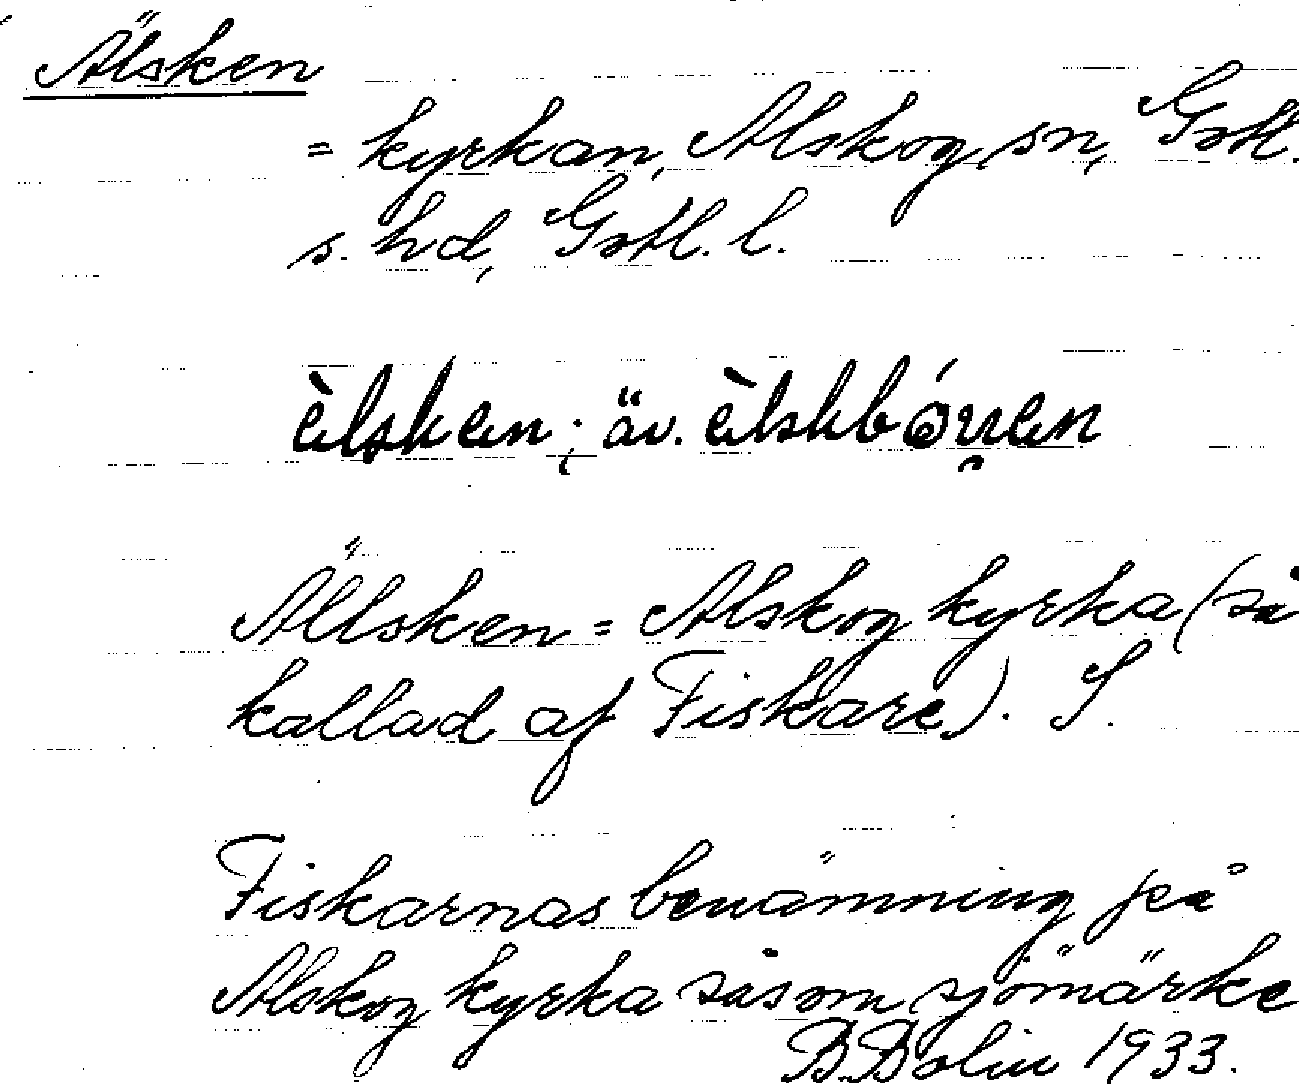 Älsken
= kyrkan, Alskog sn, Gotl.
s. hd, Gotl. l.
èlsken; äv. èlskbórren
Ällsken = Alskog kyrka (så
kallad af Fiskare). S.
Fiskarnas benämning på
Alskog kyrka såsom sjömärke
B. Bolin 1933.